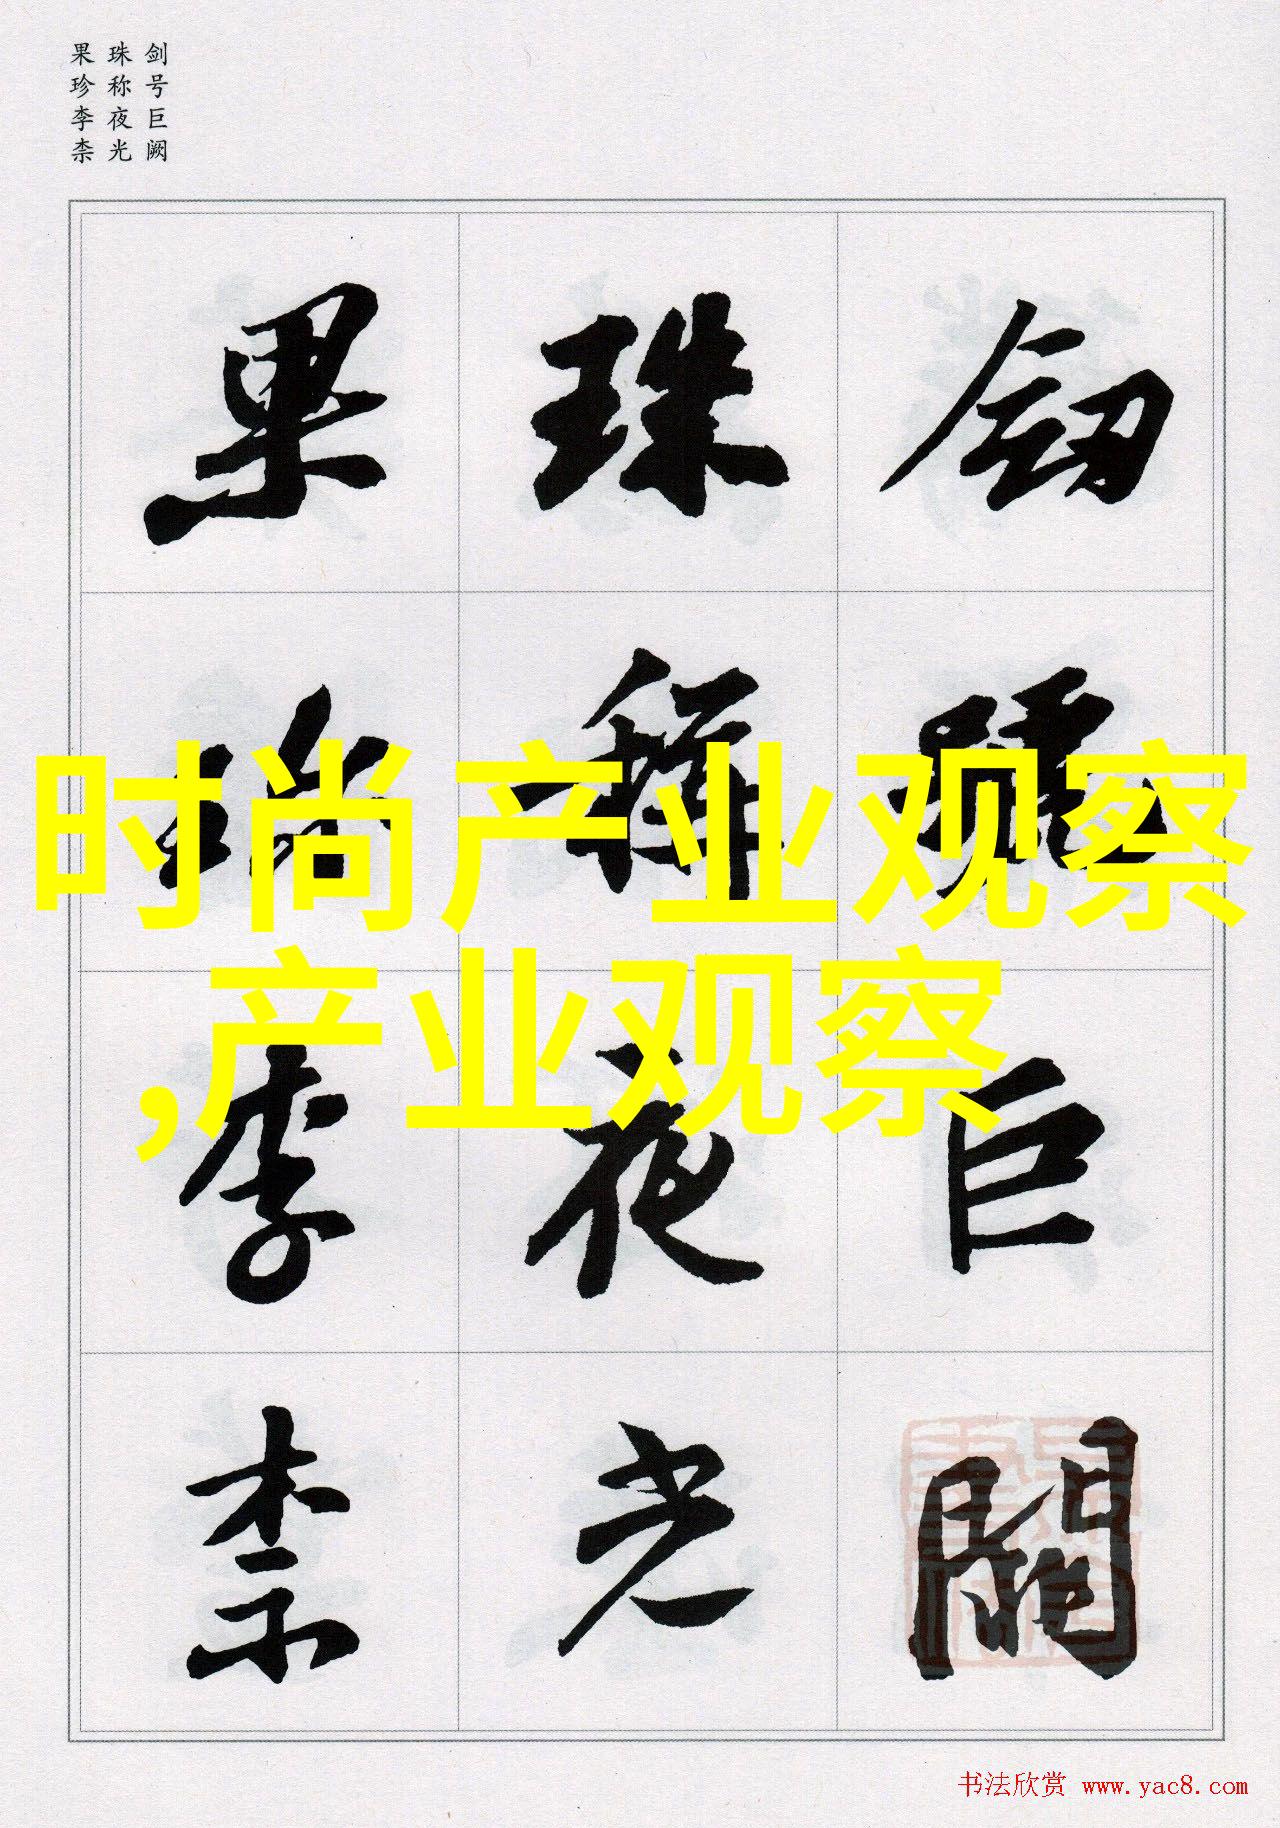 剑号巨阙
珠称夜光
果珍李柰
劒號巨闕
珠稱夜光
果珍李柰
时尚产业观察
,产业观察
书法欣赏 www.yac8.com